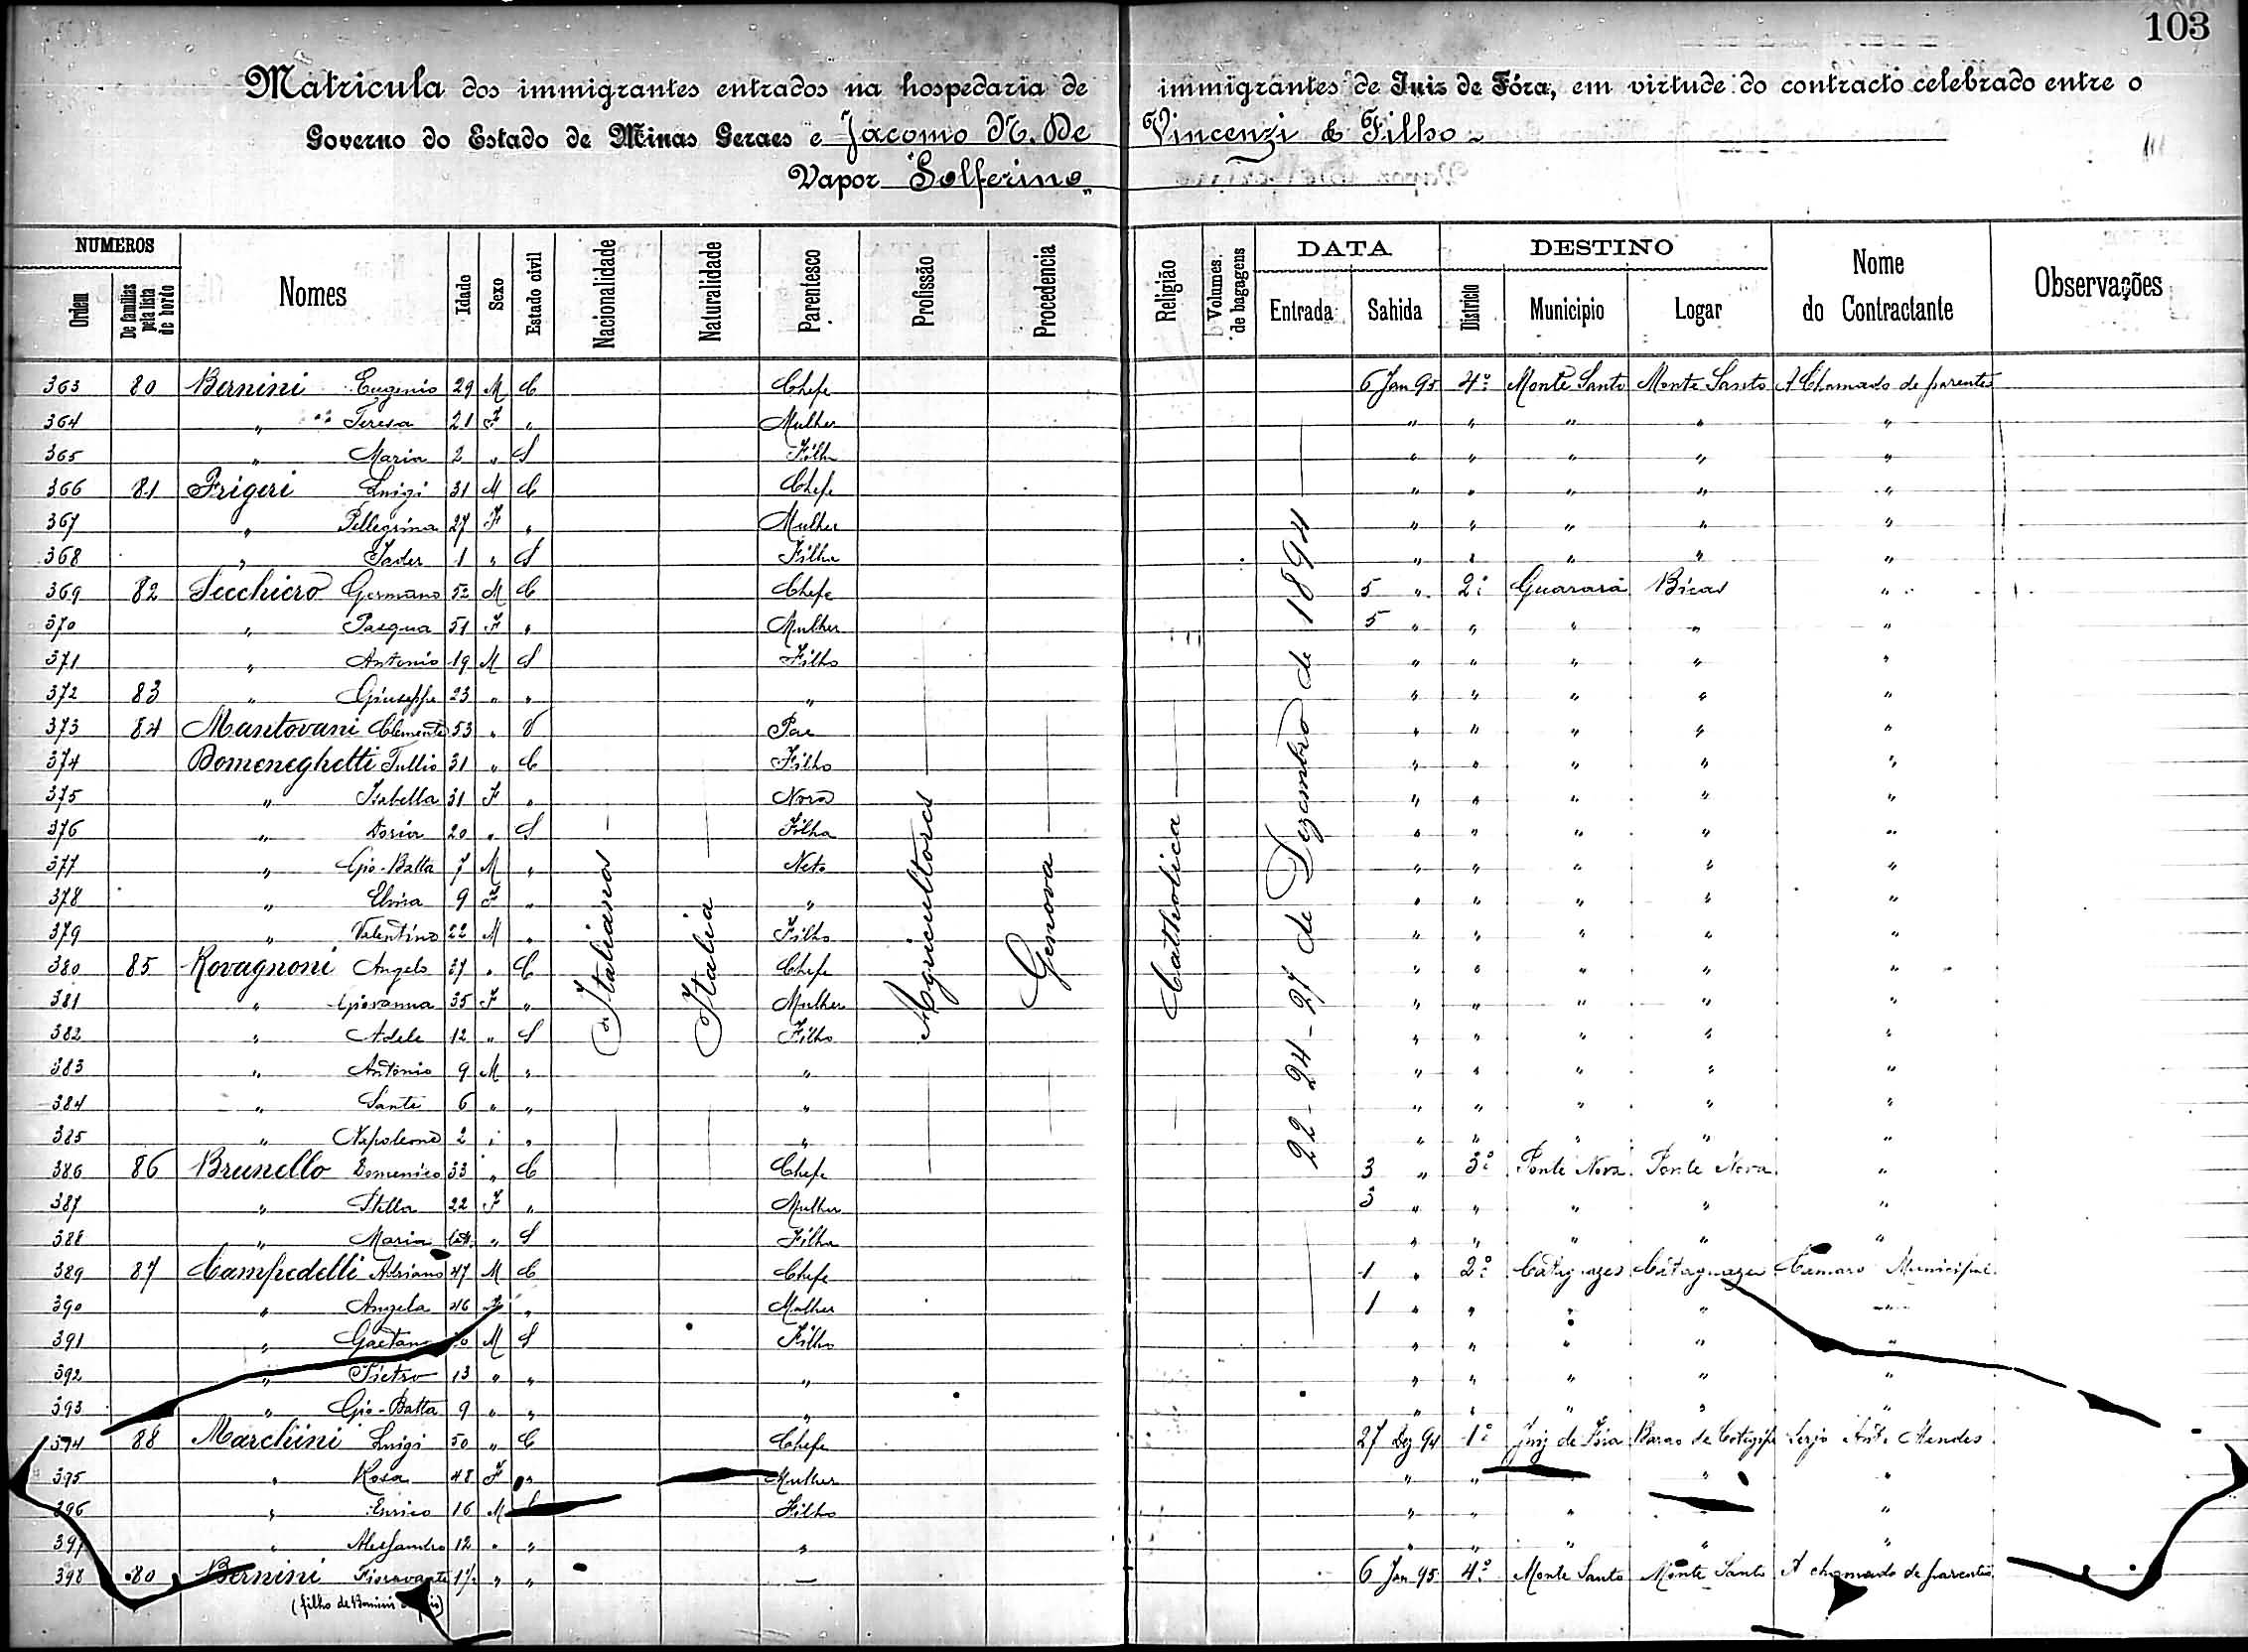 103
Matricula dos immigrantes entrados na hospedaria de immigrantes de Juiz de Fóra, em virtude do contracto celebrado entre o
Governo do Estado de Minas Geraes e Jacomo N. De Vincenzi & Filho
Vapor "Solferino"
NUMEROS DATA DESTINO
Ordem De familias pela lista de bordo Nomes Idade Sexo Estado civil Nacionalidade Naturalidade Parentesco Profissão Procedencia Religião Volumes de bagagens Entrada Sahida Districto Municipio Logar Nome do Contractante Observações
363 80 Bernini Eugenio 29 M C Chefe 6 Jan 95 4º Monte Santo Monte Santo A Chamado de parentes
364 " Teresa 21 F " Mulher " " " " "
365 " Maria 2 " S Filha " " " " "
366 81 Frigeri Luigi 31 M C Chefe " " " " "
367 " Pellegrina 27 F " Mulher " " " " "
368 " Jader 1 " S Filha " " " " "
369 82 Secchiero Germano 52 M C Chefe 5 " 2º Guarará Bicas "
370 " Pasqua 51 F " Mulher 5 " " " " "
371 " Antonio 19 M S Filho " " " " "
372 83 " Giuseppe 23 " " " " " " " "
373 84 Mantovani Clemente 53 " V Pae " " " " "
374 Domeneghetti Tullio 31 " C Filho " " " " "
375 " Isabella 31 F " Nora " " " " "
376 " Doria 20 " S Filha " " " " "
377 " Gio-Batta 7 M " Neto " " " " "
378 " Elvira 9 F " " " " " " "
379 " Valentino 22 M " Filho " " " " "
380 85 Rovagnoni Angelo 37 " C Chefe " " " " "
381 " Giovanna 35 F " Mulher " " " " "
382 " Adele 12 " S Filho " " " " "
383 " Antonio 9 M " " " " " " "
384 " Sante 6 " " " " " " " "
385 " Napoleone 2 " " " " " " " "
386 86 Brunello Domenico 33 " C Chefe 3 " 3º Ponte Nova Ponte Nova "
387 " Stella 22 F " Mulher 3 " " " " "
388 " Maria " S Filha " " " " "
389 87 Campedelli Adriano 47 M C Chefe 1 " 2º Cataguazes Cataguazes Camara Municipal
390 " Angela 46 F " Mulher 1 " " " " "
391 " Gaetano M S Filho " " " " "
392 " Pietro 13 " " " " " " " "
393 " Gio-Batta 9 " " " " " " " "
394 88 Marchini Luigi 50 " C Chefe 27 Dez 94 1º Juiz de Fóra Barao de Cotegipe Ant. Mendes
395 " Rosa 48 F " Mulher " " " "
396 " Enrico 16 M Filho " " " "
397 " Alessandro 12 " " " " " " " "
398 80 Bernini Fioravante " " — 6 Jan 95 4º Monte Santo Monte Santo A chamado de parentes
(filho de Bernini
Italianos
Italia
Agricultores
Genova
Catholica
22-24-27 de Dezembro de 1894